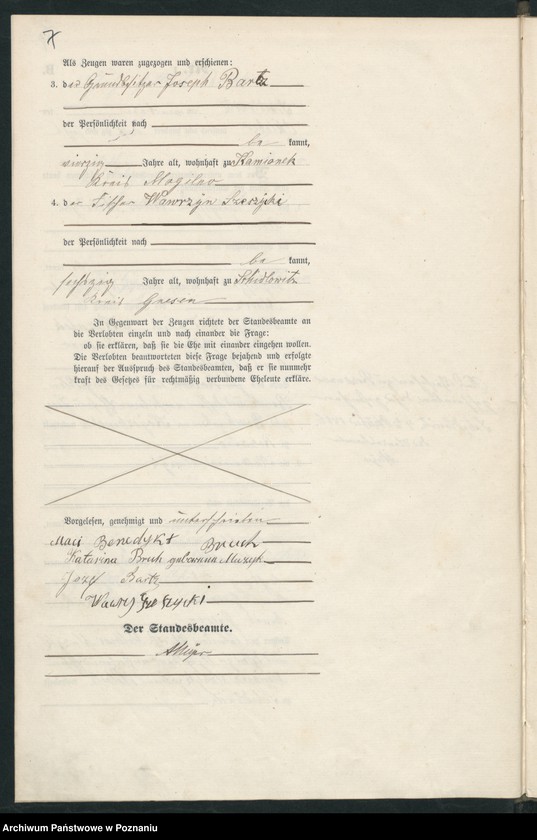 Als Zeugen waren zugezogen und erschienen:
3. der Grundbesitzer Joseph Bartz
der Persönlichkeit nach
be kannt,
vierzig Jahre alt, wohnhaft zu Kamionek
Kreis Mogilno
4. der Fischer Wawrzyn
der Persönlichkeit nach
be kannt,
sechzig Jahre alt, wohnhaft zu
Kreis Gnesen
In Gegenwart der Zeugen richtete der Standesbeamte an
die Verlobten einzeln und nach einander die Frage:
ob sie erklären, daß sie die Ehe mit einander eingehen wollen.
Die Verlobten beantworteten diese Frage bejahend und erfolgte
hierauf der Ausspruch des Standesbeamten, daß er sie nunmehr
kraft des Gesetzes für rechtmäßig verbundene Eheleute erkläre.
Vorgelesen, genehmigt und unterschrieben
Benedykt Bruch
Katarina Bruch geborena Muzyk
Jozef Bartz
Der Standesbeamte.
Archiwum Państwowe w Poznaniu